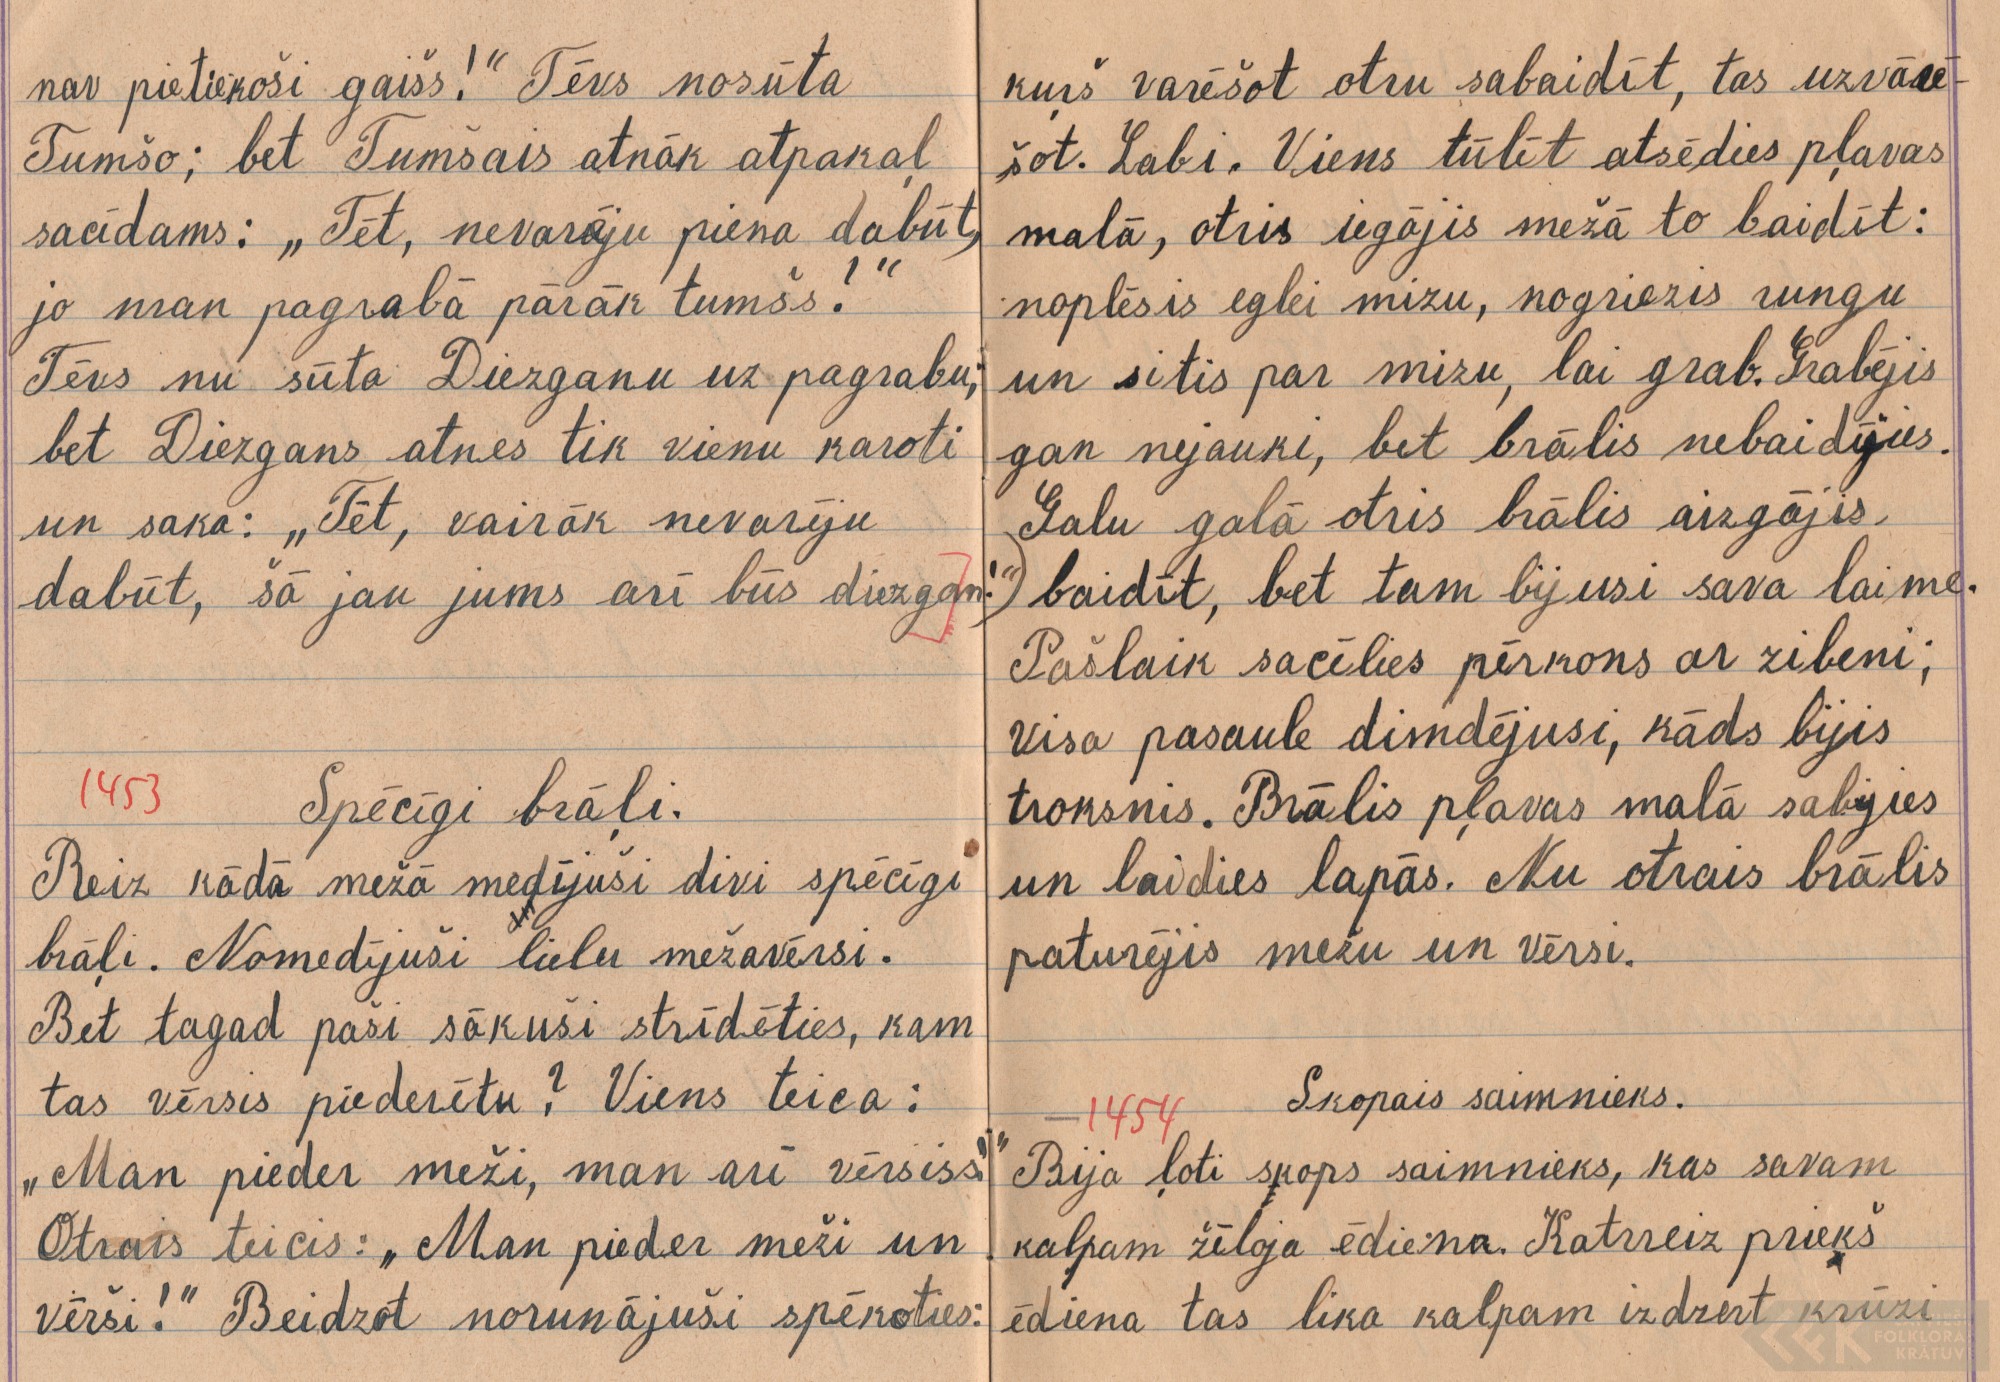 nav pietiekoši gaišs!“ Tēvs nosūta
Tumšo; bet Tumšais atnāk atpakaļ
sacīdams: „Tēt, nevarēju piena dabūt,
jo man pagrabā pārāk tumšs!“
Tēvs nu sūta Diezganu uz pagrabu;
bet Diezgans atnes tik vienu karoti
un saka: „Tēt, vairāk nevarēju
dabūt, šā jau jums arī būs diezgan!“)
1453
Spēcīgi brāļi.
Reiz kādā mežā medījuši divi spēcīgi
brāļi. Nomedījuši lielu mežavērsi.
Bet tagad paši sākuši strīdēties, kam
tas vērsis piederētu? Viens teica:
„Man pieder meži, man arī vērsiss!“
Otrais teicis: „Man pieder meži un
vērši!“ Beidzot norunājuši spēkoties:
kuŗš varēšot otru sabaidīt, tas uzvarē-
šot. Labi. Viens tūlīt atsēdies pļavas
malā, otris iegājis mežā to baidīt:
noplēsis eglei mizu, nogriezis rungu
un sitis par mizu, lai grab. Grabējis
gan nejauki, bet brālis nebaidījies.
Galu galā otris brālis aizgājis
baidīt, bet tam bijusi sava laime.
Pašlaik sacēlies pērkons ar zibeni;
visa pasaule dimdējusi, kāds bijis
troksnis. Brālis pļavas malā sabijies
un laidies lapās. Nu otrais brālis
paturējis mežu un vērsi.
Skopais saimnieks.
1454
Bija ļoti skops saimnieks, kas savam
kalpam žēloja ēdiena. Katrreiz priekš
ēdiena tas lika kalpam izdzert krūzi
FOLKLORAS
KRĀTUVE